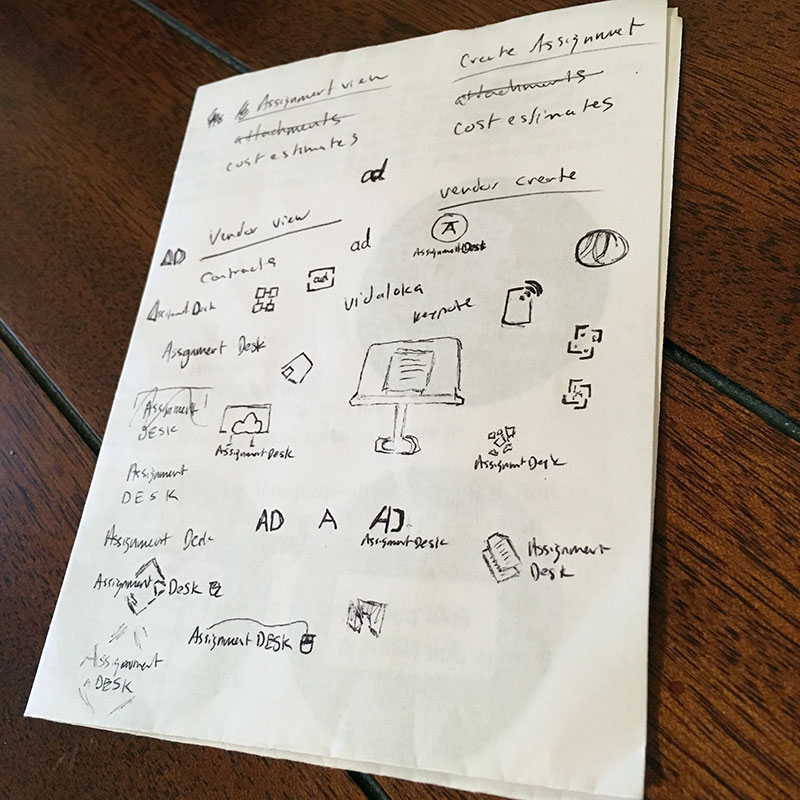 Assignment view
attachments
cost estimates
Create Assignment
attachments
cost estimates
ad
vendor create
Vendor view
AD
ad
A
Assignment Desk
Contracts
ad
vidaloka
keynote
Assignment Desk
Assignment Desk
Assignment
DESK
Assignment Desk
Assignment Desk
Assignment
DESK
AD
A
AD
Assignment Desk
Assignment Desk
Assignment
Desk
Assignment Desk
Assignment DESK
Assignment
DESK